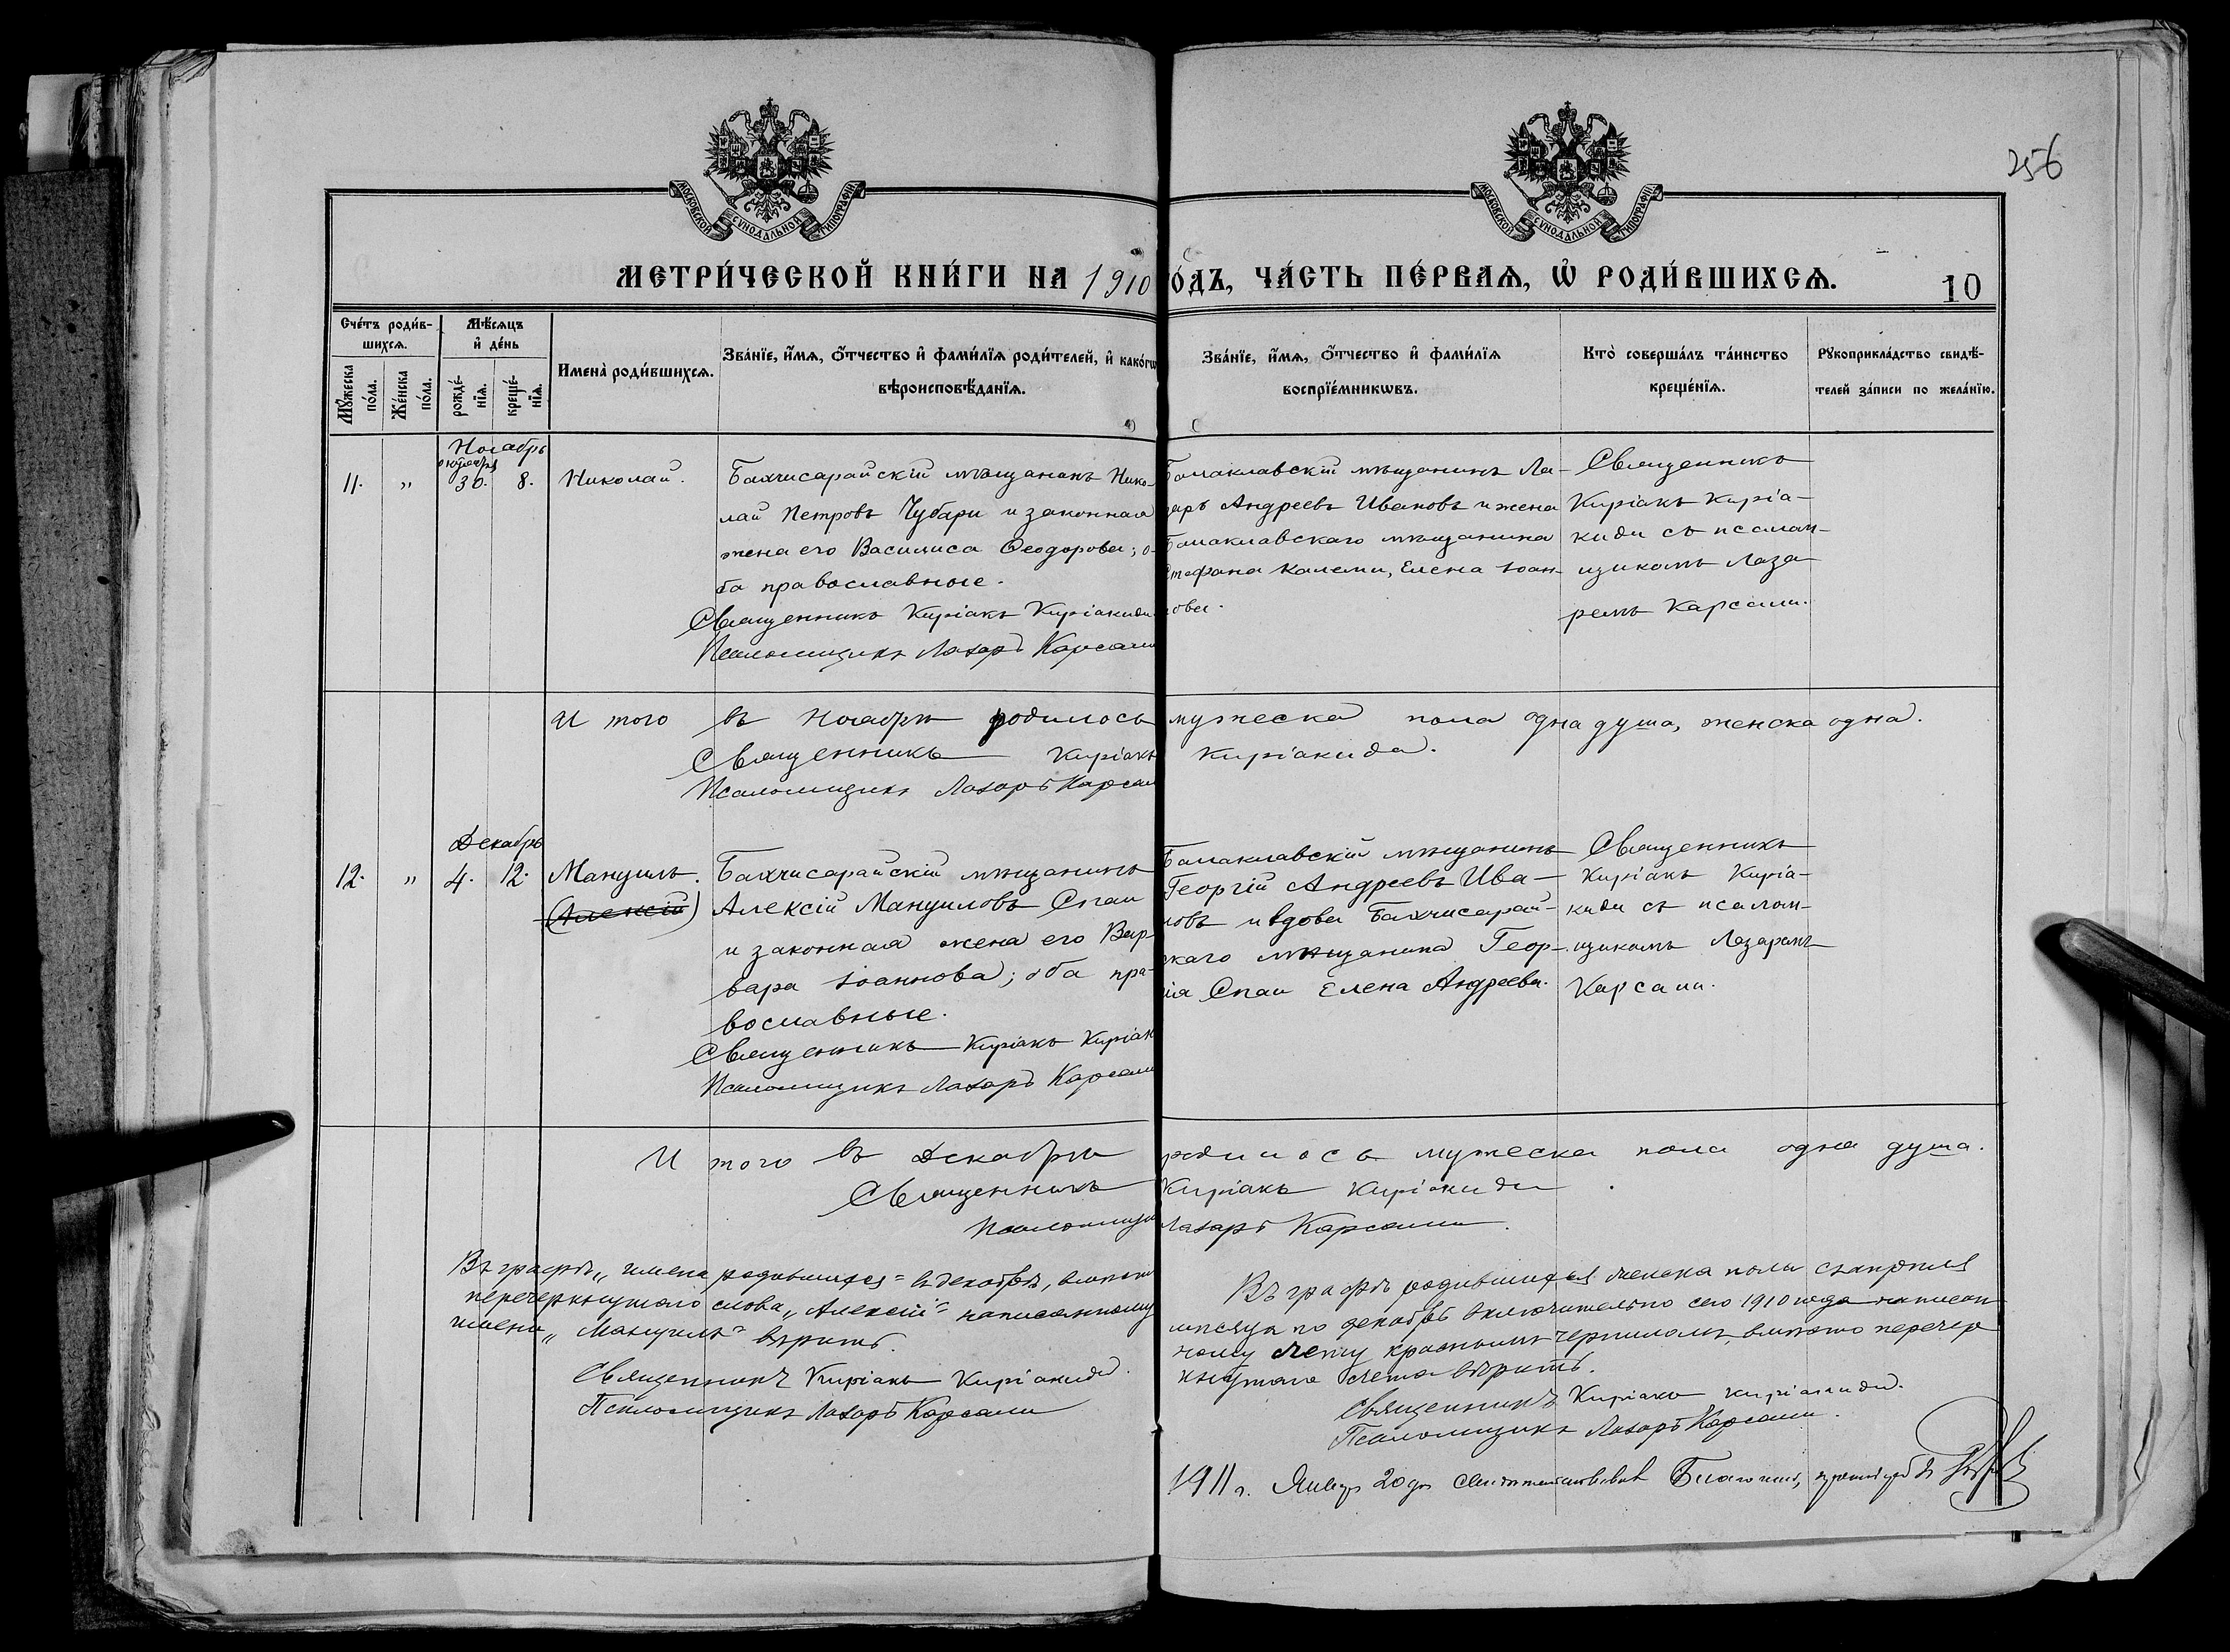 256
МОСКОВСКОЙ СѴНОДАЛЬНОЙ ТИПОГРАФІИ
МОСКОВСКОЙ СѴНОДАЛЬНОЙ ТИПОГРАФІИ
МЕТРИ́ЧЕСКОЙ КНИ́ГИ НА 1910
О́ДЪ, ЧА́СТЬ ПЕ́РВАѦ, Ѡ҆ РОДИ́ВШИХСѦ.
10
Сче́тъ роди́в-
шихсѧ.
Мѣ́сѧцъ
и҆ де́нь
Мꙋ́жеска
по́ла.
Же́нска
по́ла.
рожде́-
нїѧ.
креще́-
нїѧ.
Имена̀ роди́вшихсѧ.
Зва́нїе, и҆́мѧ, ѻ҆́тчество и҆ фами́лїѧ роди́телей, и҆ како́гѡ
вѣроисповѣ́данїѧ.
Зва́нїе, и҆́мѧ, ѻ҆́тчество и҆ фами́лїѧ
воспрїе́мникѡвъ.
Кто̀ соверша́лъ та́инство
креще́нїѧ.
Рꙋкоприкла́дство свидѣ́-
телей за́писи по жела́нїю.
Ноябрь
октября
11. " 30. 8. Николай.
Бахчисарайскій мѣщанинъ Нико-
лай Петровъ Чубари и законная
жена его Василиса Ѳеодорова; о-
ба православные.
Священникъ Киріакъ Киріакиди
Псаломщикъ Лазарь Карсали
Балаклавскій мѣщанинъ Ла-
зарь Андреевъ Ивановъ и жена
Балаклавскаго мѣщанина
Стефана Калеми, Елена Іоан-
нова.
Священникъ
Киріакъ Киріа-
киди съ псалом-
щикомъ Лаза-
ремъ Карсали.
И того въ Ноябрѣ родилось мужеска пола одна душа, женска одна.
Священникъ Киріакъ Киріакиди.
Псаломщикъ Лазарь Карсали
Декабрь
12. " 4. 12. Мануилъ.
(Алексій)
Бахчисарайскій мѣщанинъ
Алексій Мануиловъ Спаи
и законная жена его Вар-
вара Іоаннова; оба пра-
вославные.
Священникъ Киріакъ Киріак
Псаломщикъ Лазарь Карсали
Балаклавскій мѣщанинъ
Георгій Андреевъ Ива-
новъ и вдова Бахчисарай-
скаго мѣщанина Геор-
гія Спаи Елена Андреева.
Священникъ
Киріакъ Киріа-
киди съ псалом-
щикомъ Лазаремъ
Карсали.
И того въ Декабрѣ родилось мужеска пола одна душа.
Священникъ Киріакъ Киріакиди.
Псаломщикъ Лазарь Карсали.
Въ графѣ „имена родившихся" въ декабрѣ, вмѣсто
перечеркнутаго слова „Алексій" написанному
имени „Мануилъ" вѣрить.
Священникъ Киріакъ Киріакиди.
Псаломщикъ Лазарь Карсали
Въ графѣ родившихся женска пола съ апрѣля
мѣсяца по декабрь включительно сего 1910 года написан-
ному счету красными чернилами, вмѣсто перечер-
кнутаго счета вѣрить.
Священникъ Киріакъ Киріакиди.
Псаломщикъ Лазарь Карсали.
1911 г. Январ 20 дн свидѣтельствовалъ Благочин,